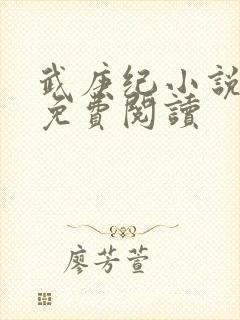 武庚纪小說
免費閱讀
廖芳萱